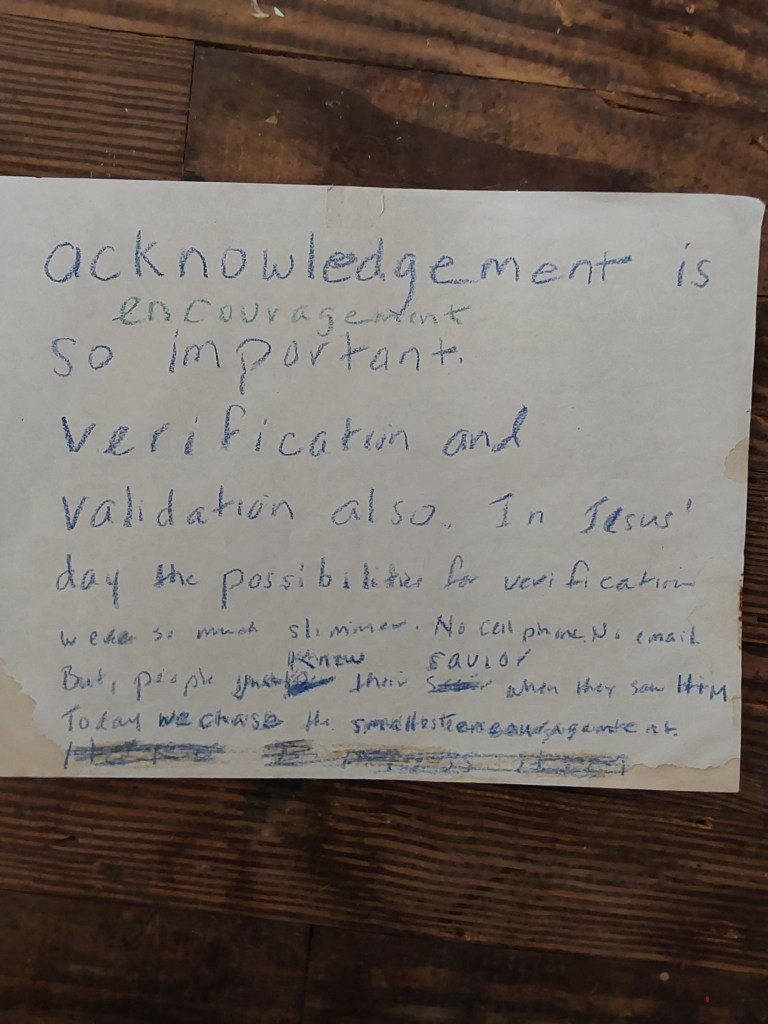 acknowledgement is
encouragement
so important.
verification and
validation also. In Jesus'
day the possibilities for verification
were so much slimmer. No cell phone. No email
Knew savior
But, people just their when they saw HIM
Today we chase the smallest encouragement.